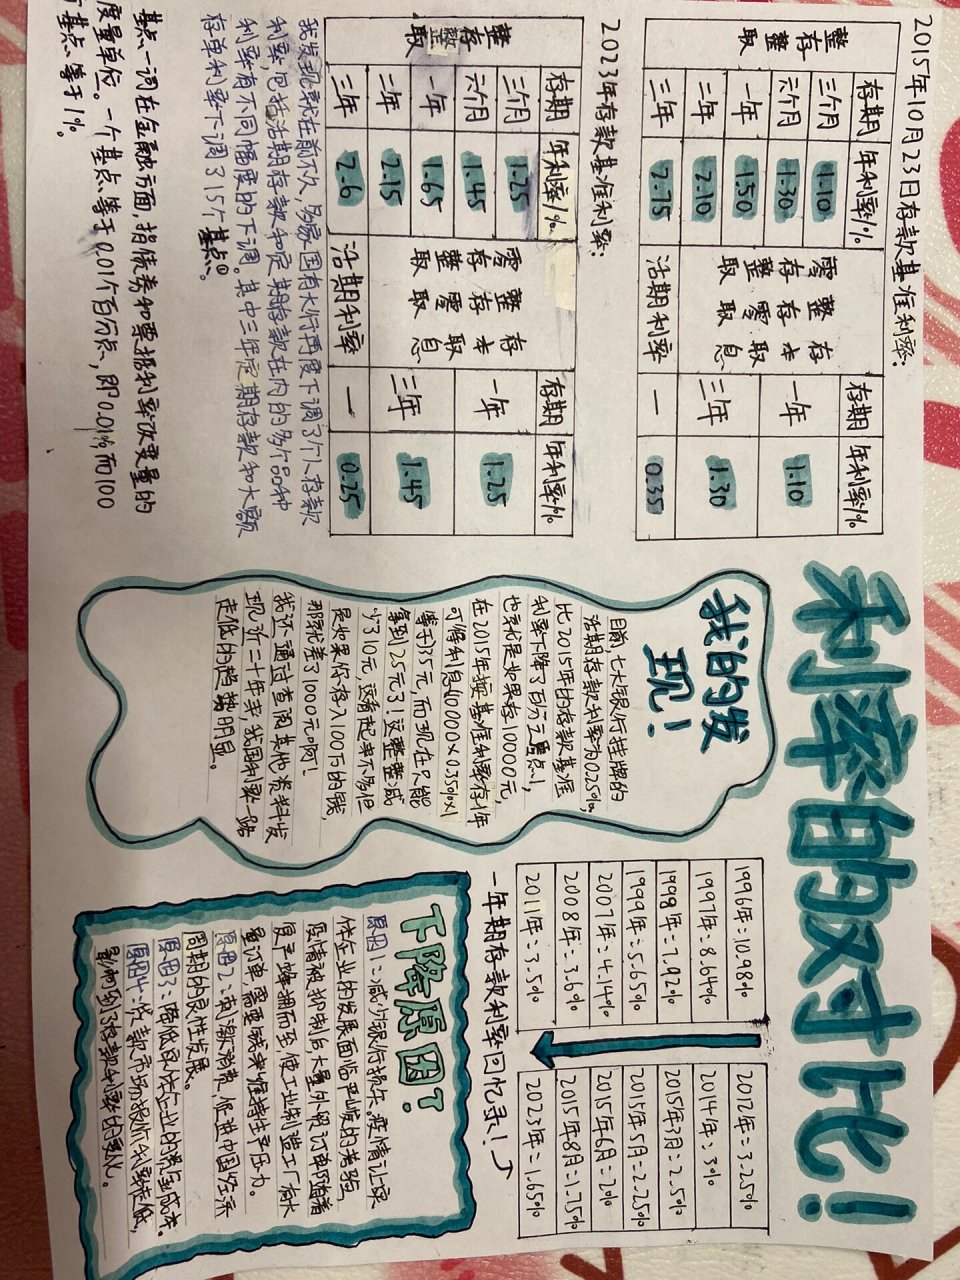 利率的对比！
2015年10月23日存款基准利率:
整存整取
存期 年利率/%
三个月 1.10
六个月 1.30
一年 1.50
二年 2.10
三年 2.75
零存整取 整存零取 存本取息
存期 年利率/%
一年 1.10
三年 1.30
活期利率 — 0.35
2023年存款基准利率:
整存整取
存期 年利率/%
三个月 1.25
六个月 1.45
一年 1.65
二年 2.15
三年 2.6
零存整取 整存零取 存本取息
存期 年利率/%
一年 1.25
三年 1.45
活期利率 — 0.25
我发现就在前不久,多家国有大行再度下调了个人存款
利率,包括活期存款和定期存款在内的多个品种
利率有不同幅度的下调。其中三年定期存款和大额
存单利率下调了15个基点。
基点一词在金融方面,指债券和票据利率改变量的
度量单位。一个基点等于0.01个百分点,即0.01%,而100
个基点等于1%。
我的发现!
目前,七大银行挂牌的
活期存款利率为0.25%,
比2015年的存款基准
利率下降了百分点,
也就是如果存10000元,
在2015年按基准利率存1年
可得利息(10000×0.35%×1
等于)35元,而现在只能
拿到25元了!这整整减
少了10元,这看起来不多但
是如果你存入100万的钱,
那就差了1000元啊!
我还通过查阅其他资料发
现,近二十年来,我国利率一路
走低的趋势明显。
1996年:10.98%
1997年:8.64%
1998年:7.92%
1999年:5.65%
2007年:4.14%
2008年:3.6%
2011年:3.5%
2012年:3.25%
2014年:3%
2015年3月:2.5%
2015年5月:2.25%
2015年6月:2%
2015年8月:1.75%
2023年:1.65%
一年期存款利率回忆录!
下降原因?
原因1:减少银行损失。疫情让实
体企业的发展面临严峻的考验,
疫情被抑制后大量外贸订单随着
复产蜂拥而至,使工业制造工厂有大
量订单,需要钱来维持生产压力。
原因2:刺激消费,促进中国经济
周期的良性发展。
原因3:降低实体企业的资金成本。
原因4:贷款市场报价利率走低,
影响到了存款利率的变化。